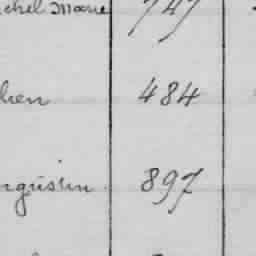 chel Marie 747
lien 484
ugustin 897